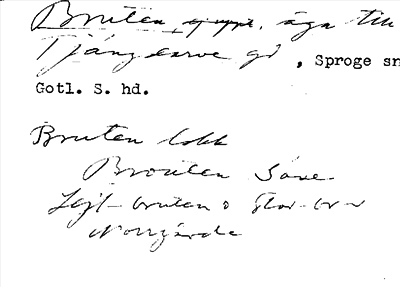 Bruten, ej uppt., äga till
Tjängdarve gd, Sproge sn
Gotl. S. hd.
Bruten lokk
Brouten Säve.
Lejl-bruten o Stor-br-n
Norrgårda